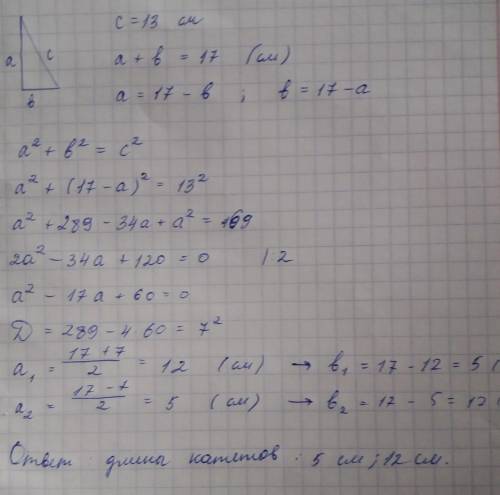 c = 13 см
a + b = 17 (см)
a = 17 - b ; b = 17 - a
a
c
b
a² + b² = c²
a² + (17 - a)² = 13²
a² + 289 - 34a + a² = 169
2a² - 34a + 120 = 0 | : 2
a² - 17a + 60 = 0
D = 289 - 4·60 = 7²
a₁ = (17 + 7)/2 = 12 (см) → b₁ = 17 - 12 = 5 (
a₂ = (17 - 7)/2 = 5 (см) → b₂ = 17 - 5 = 12
Ответ: длины катетов: 5 см; 12 см.